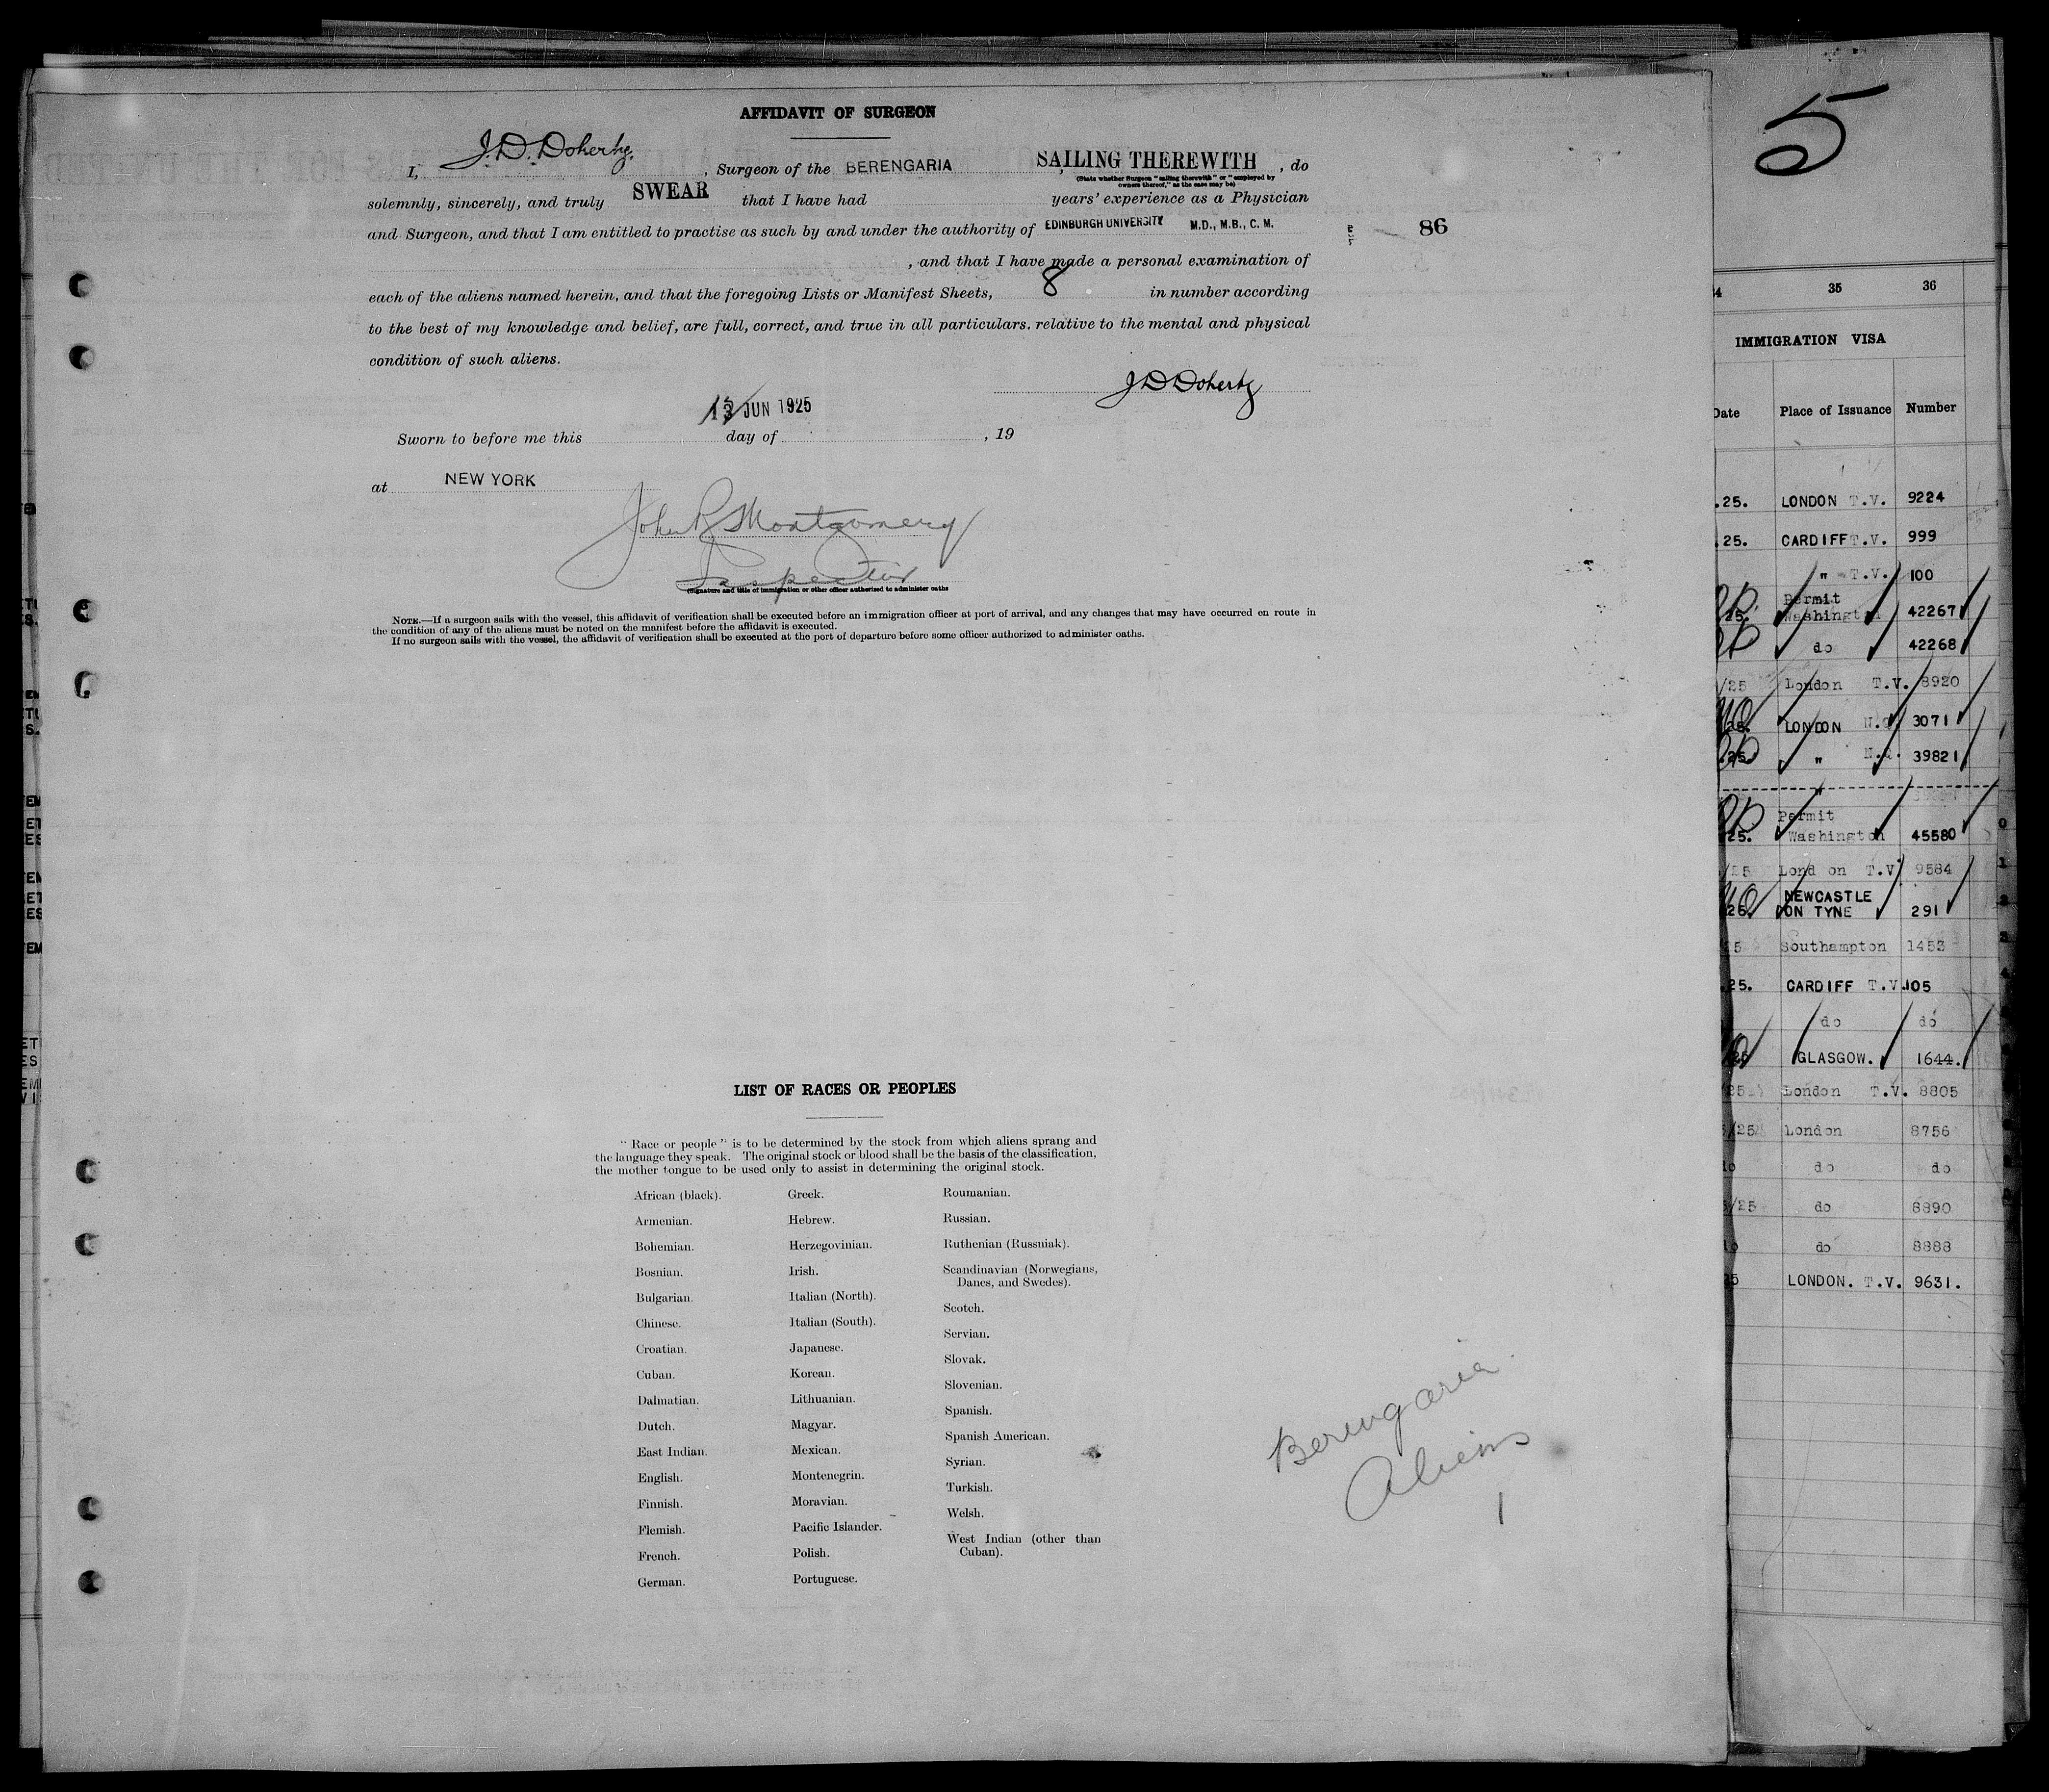 AFFIDAVIT OF SURGEON
I, J. D. Doherty, Surgeon of the BERENGARIA SAILING THEREWITH, do
(State whether Surgeon "sailing therewith" or "employed by
owners thereof," as the case may be)
solemnly, sincerely, and truly SWEAR that I have had years' experience as a Physician
and Surgeon, and that I am entitled to practise as such by and under the authority of EDINBURGH UNIVERSITY M.D., M.B., C. M.
86
, and that I have made a personal examination of
each of the aliens named herein, and that the foregoing Lists or Manifest Sheets, 8 in number according
to the best of my knowledge and belief, are full, correct, and true in all particulars. relative to the mental and physical
condition of such aliens.
J D Doherty
JUN 1925
Sworn to before me this day of , 19
at NEW YORK
John R Montgomery
Inspector
(Signature and title of immigration or other officer authorized to administer oaths
NOTE.—If a surgeon sails with the vessel, this affidavit of verification shall be executed before an immigration officer at port of arrival, and any changes that may have occurred en route in
the condition of any of the aliens must be noted on the manifest before the affidavit is executed.
If no surgeon sails with the vessel, the affidavit of verification shall be executed at the port of departure before some officer authorized to administer oaths.
LIST OF RACES OR PEOPLES
"Race or people" is to be determined by the stock from which aliens sprang and
the language they speak. The original stock or blood shall be the basis of the classification,
the mother tongue to be used only to assist in determining the original stock.
African (black).
Armenian.
Bohemian.
Bosnian.
Bulgarian.
Chinese.
Croatian.
Cuban.
Dalmatian.
Dutch.
East Indian.
English.
Finnish.
Flemish.
French.
German.
Greek.
Hebrew.
Herzegovinian.
Irish.
Italian (North).
Italian (South).
Japanese.
Korean.
Lithuanian.
Magyar.
Mexican.
Montenegrin.
Moravian.
Pacific Islander.
Polish.
Portuguese.
Roumanian.
Russian.
Ruthenian (Russniak).
Scandinavian (Norwegians,
Danes, and Swedes).
Scotch.
Servian.
Slovak.
Slovenian.
Spanish.
Spanish American.
Syrian.
Turkish.
Welsh.
West Indian (other than
Cuban).
Berengaria
Aliens
1
5
35 36
IMMIGRATION VISA
Date Place of Issuance Number
.25. LONDON T.V. 9224
.25. CARDIFF T.V. 999
" T.V. 100
Permit
25. Washington 42267
do 42268
/25 London T.V. 8920
25. LONDON N.Q. 3071
.25. " N.Q. 39821
Permit
25. Washington 45580
/25 London T.V. 9584
NEWCASTLE
25. ON TYNE 291
Southampton 1453
25. CARDIFF T.V. 105
do do
25 GLASGOW. 1644.
/25 London T.V. 8805
/25 London 8756
do do
/25 do 8890
do 8888
25 LONDON. T.V. 9631.